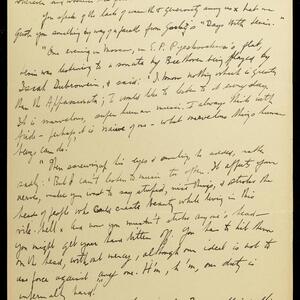 You speak of the lack of warmth & generosity among us & let me
quote you something by way of a parallel from Gorky's "Days with Lenin."
"One evening in Moscow, in E. P. Pyeshkovskaya's flat,
Lenin was listening to a sonata by Beethoven being played by
Isaiah Dobrowein, & said: "I know nothing which is greater
than the Appassionata; I would like to listen to it every day.
It is marvellous, super human music. I always think with
pride - perhaps it is naive of me - what marvellous things human
beings can do!
"Then screwing up his eyes & smiling he added, rather
sadly: "But I can't listen to music too often. It affects your
nerves, makes you want to say stupid, nice things, & stroke the
heads of people who could create beauty while living in this
vile hell. & now you mustn't stroke any one's head -
you might get your hand bitten off. You have to hit them
on the head, without mercy, although our ideal is not to
use force against any one. H'm, h'm, our duty is
infernally hard!"